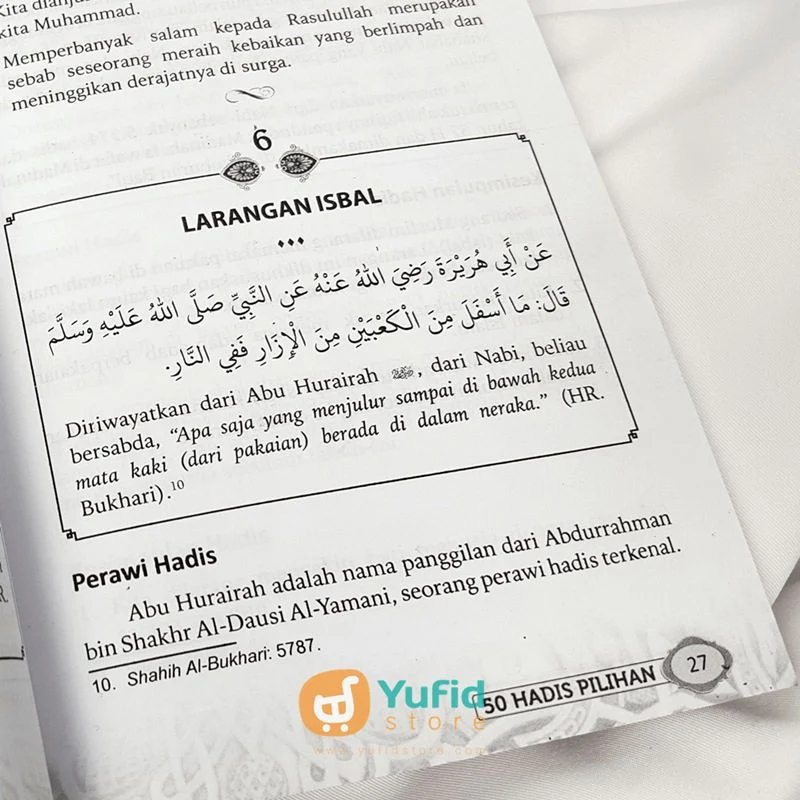 kita Muhammad.
Memperbanyak salam kepada Rasulullah merupakan
sebab seseorang meraih kebaikan yang berlimpah dan
meninggikan derajatnya di surga.
6
LARANGAN ISBAL
عَنْ أَبِي هُرَيْرَةَ رَضِيَ اللهُ عَنْهُ عَنِ النَّبِيِّ صَلَّى اللهُ عَلَيْهِ وَسَلَّمَ
قَالَ: مَا أَسْفَلَ مِنَ الْكَعْبَيْنِ مِنَ الْإِزَارِ فَفِي النَّارِ.
Diriwayatkan dari Abu Hurairah, dari Nabi, beliau
bersabda, “Apa saja yang menjulur sampai di bawah kedua
mata kaki (dari pakaian) berada di dalam neraka.” (HR.
Bukhari).10
Perawi Hadis
Abu Hurairah adalah nama panggilan dari Abdurrahman
bin Shakhr Al-Dausi Al-Yamani, seorang perawi hadis terkenal.
10. Shahih Al-Bukhari: 5787.
50 HADIS PILIHAN 27
Yufid
store
www.yufidstore.com